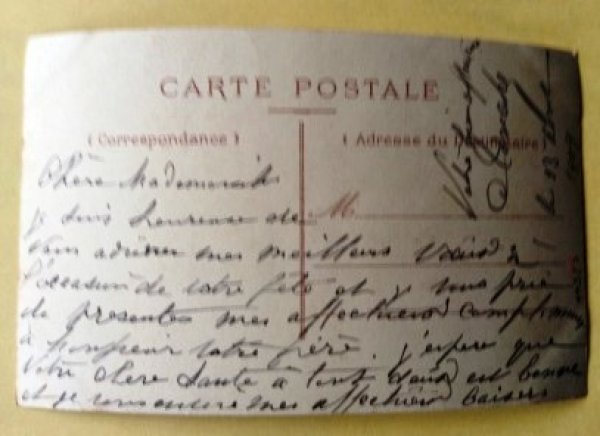 CARTE POSTALE
( Correspondance )
( Adresse du Destinataire )
M.
Chère Mademoiselle
je suis heureuse de
vous adresser mes meilleurs vœux à
l'occasion de votre fête et je vous prie
de presenter mes affectueux compliments
à monsieur votre père, j'espère que
votre chère santé à tout deux est bonne
et je vous envoie mes affectueux baisers
Votre
le 13